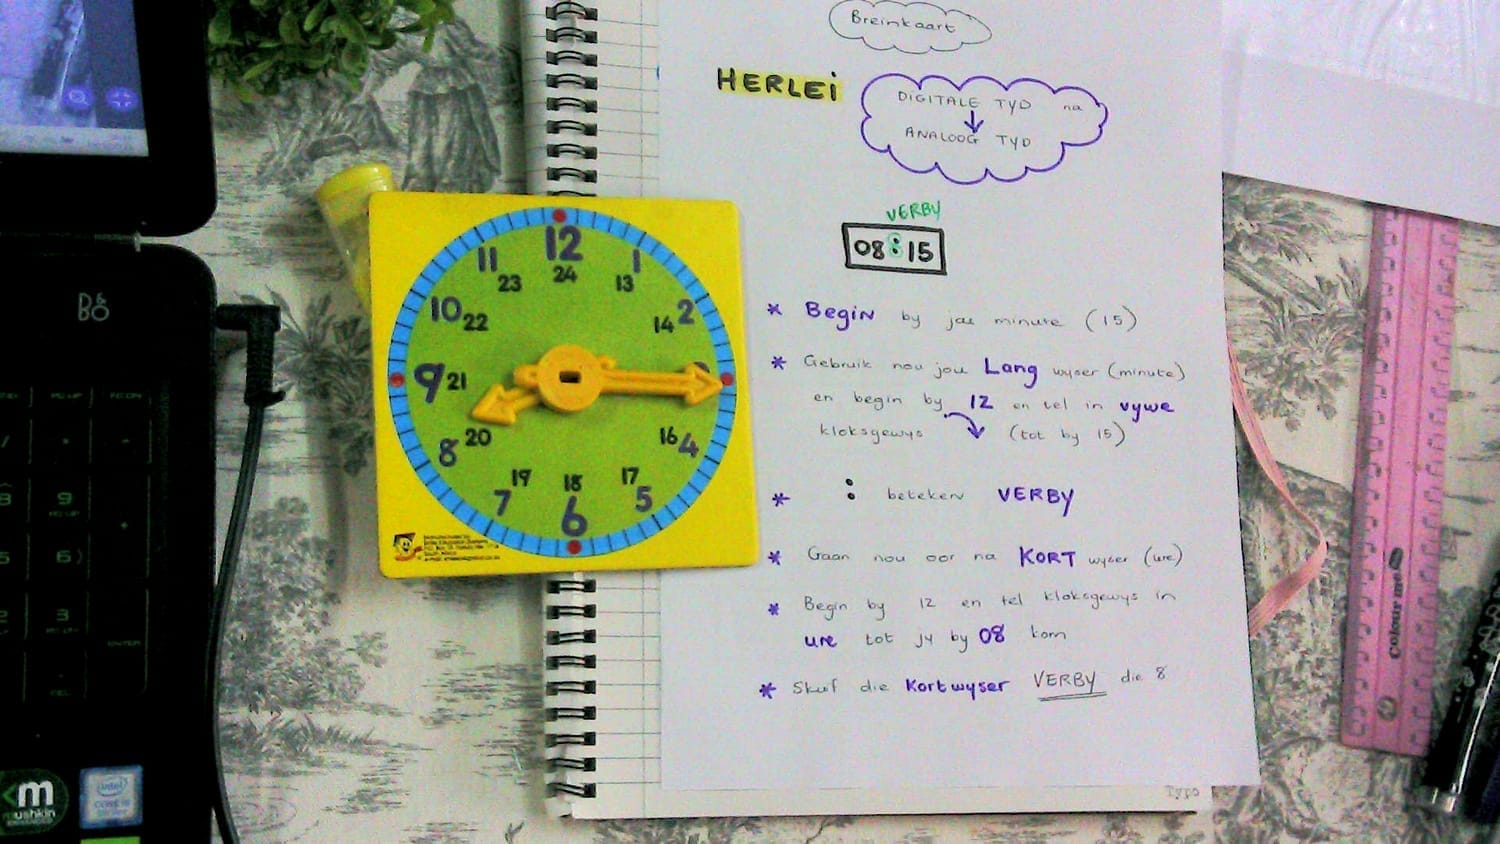 Breinkaart
HERLEi
DIGITALE TYD na
ANALOOG TYD
VERBY
08:15
* Begin by jou minute (15)
* Gebruik nou jou Lang wyser (minute)
en begin by 12 en tel in vywe
kloksgewys (tot by 15)
* : beteken VERBY
* Gaan nou oor na KORT wyser (ure)
* Begin by 12 en tel kloksgewys in
ure tot jy by 08 kom
* Skuif die Kortwyser VERBY die 8
12
11
1
24
23
13
10
22
14
2
9
21
8
20
16
4
19
18
17
7
6
5
B&O
mushkin
intel
CORE i5
ENTER
9
6
3
Colour me
Typo